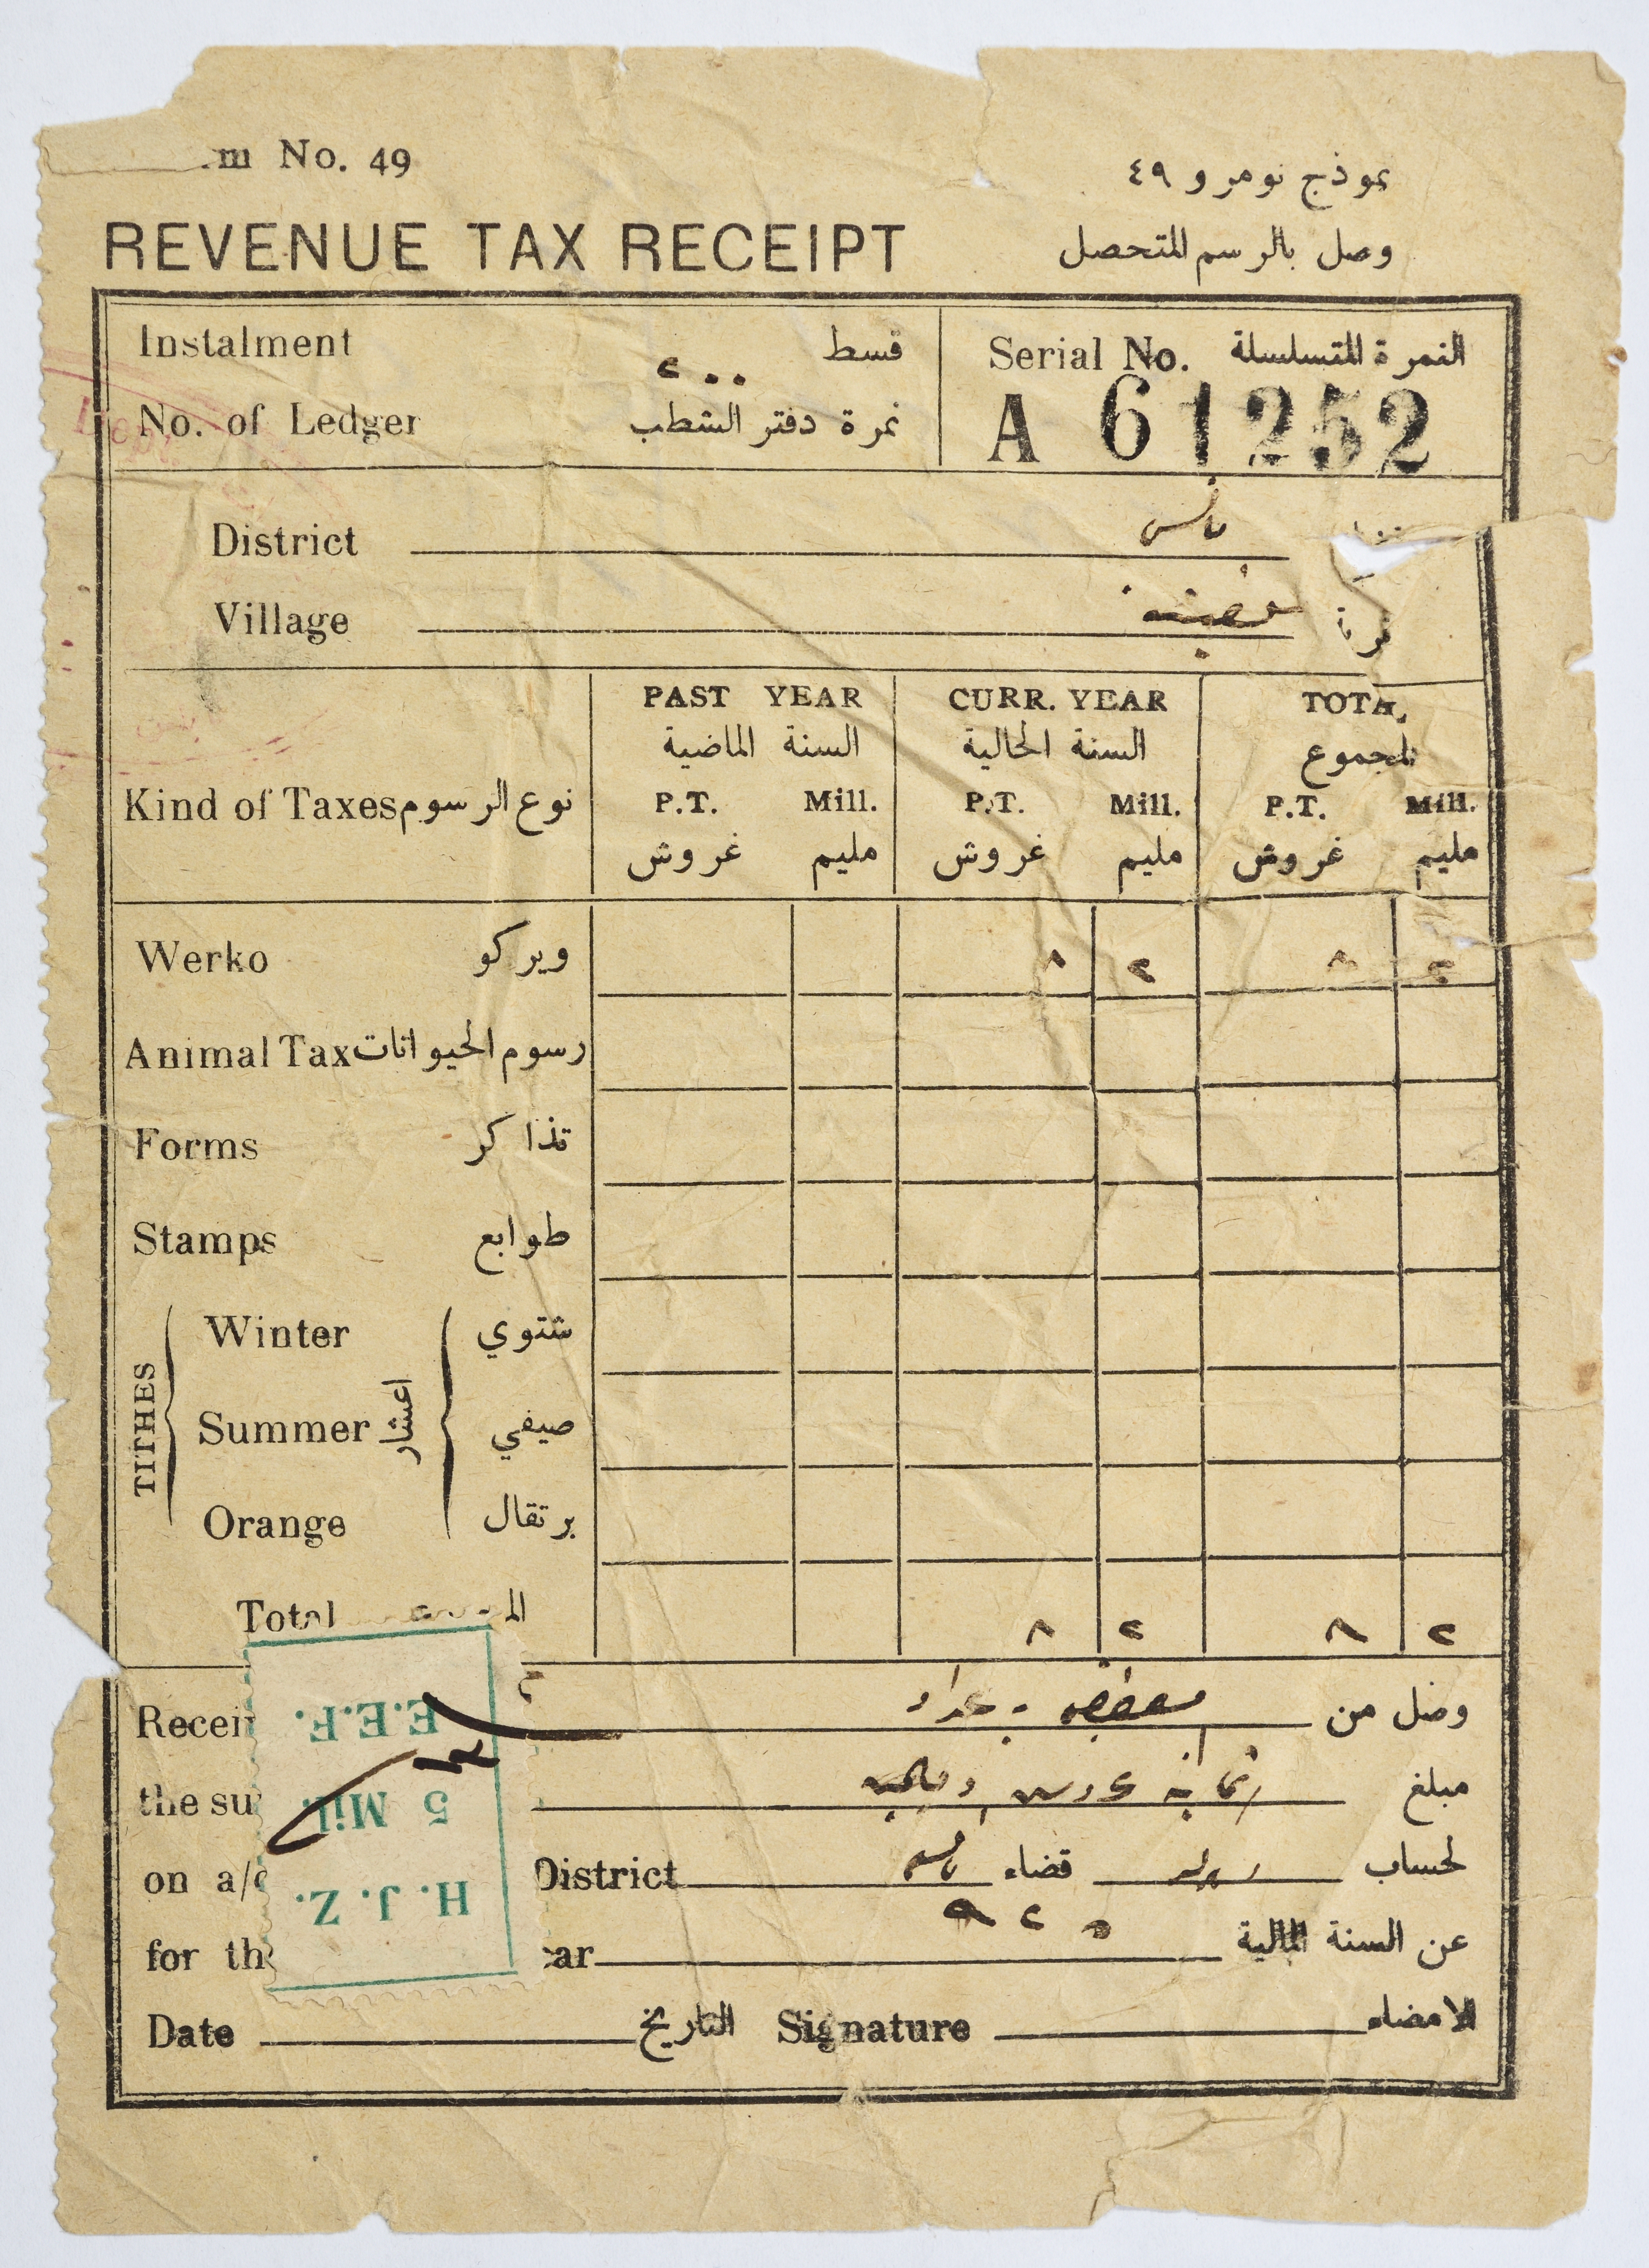 m No. 49 نموذج نومرو ٤٩
REVENUE TAX RECEIPT وصل بالرسم المتحصل
Instalment قسط
Serial No. النمرة المتسلسلة
٢٠٠
No. of Ledger نمرة دفتر الشطب
A 61252
District
Village
PAST YEAR CURR. YEAR TOTA
السنة الماضية السنة الحالية المجموع
Kind of Taxes نوع الرسوم P.T. Mill. P.T. Mill. P.T. Mill.
غروش مليم غروش مليم غروش مليم
Werko ويركو ٨ ٢ ٨ ٢
Animal Tax رسوم الحيوانات
Forms تذاكر
Stamps طوابع
TITHES اعشار
Winter شتوي
Summer صيفي
Orange برتقال
Total ٨ ٢ ٨ ٢
Recei وصل من
the su مبلغ
on a/c District قضاء لحساب
for th ear ٩٢٥ عن السنة المالية
Date التاريخ Signature الامضاء
E.E.F.
5 Mil.
H. J. Z.